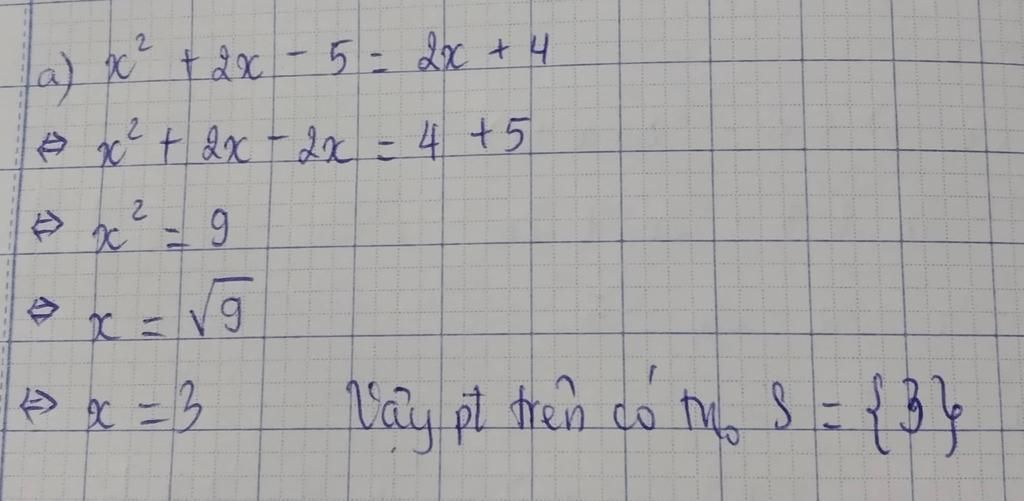 a) x² + 2x - 5 = 2x + 4
⇔ x² + 2x - 2x = 4 + 5
⇔ x² = 9
⇔ x = √9
⇔ x = 3 Vậy pt trên có tn₀ S = {3}